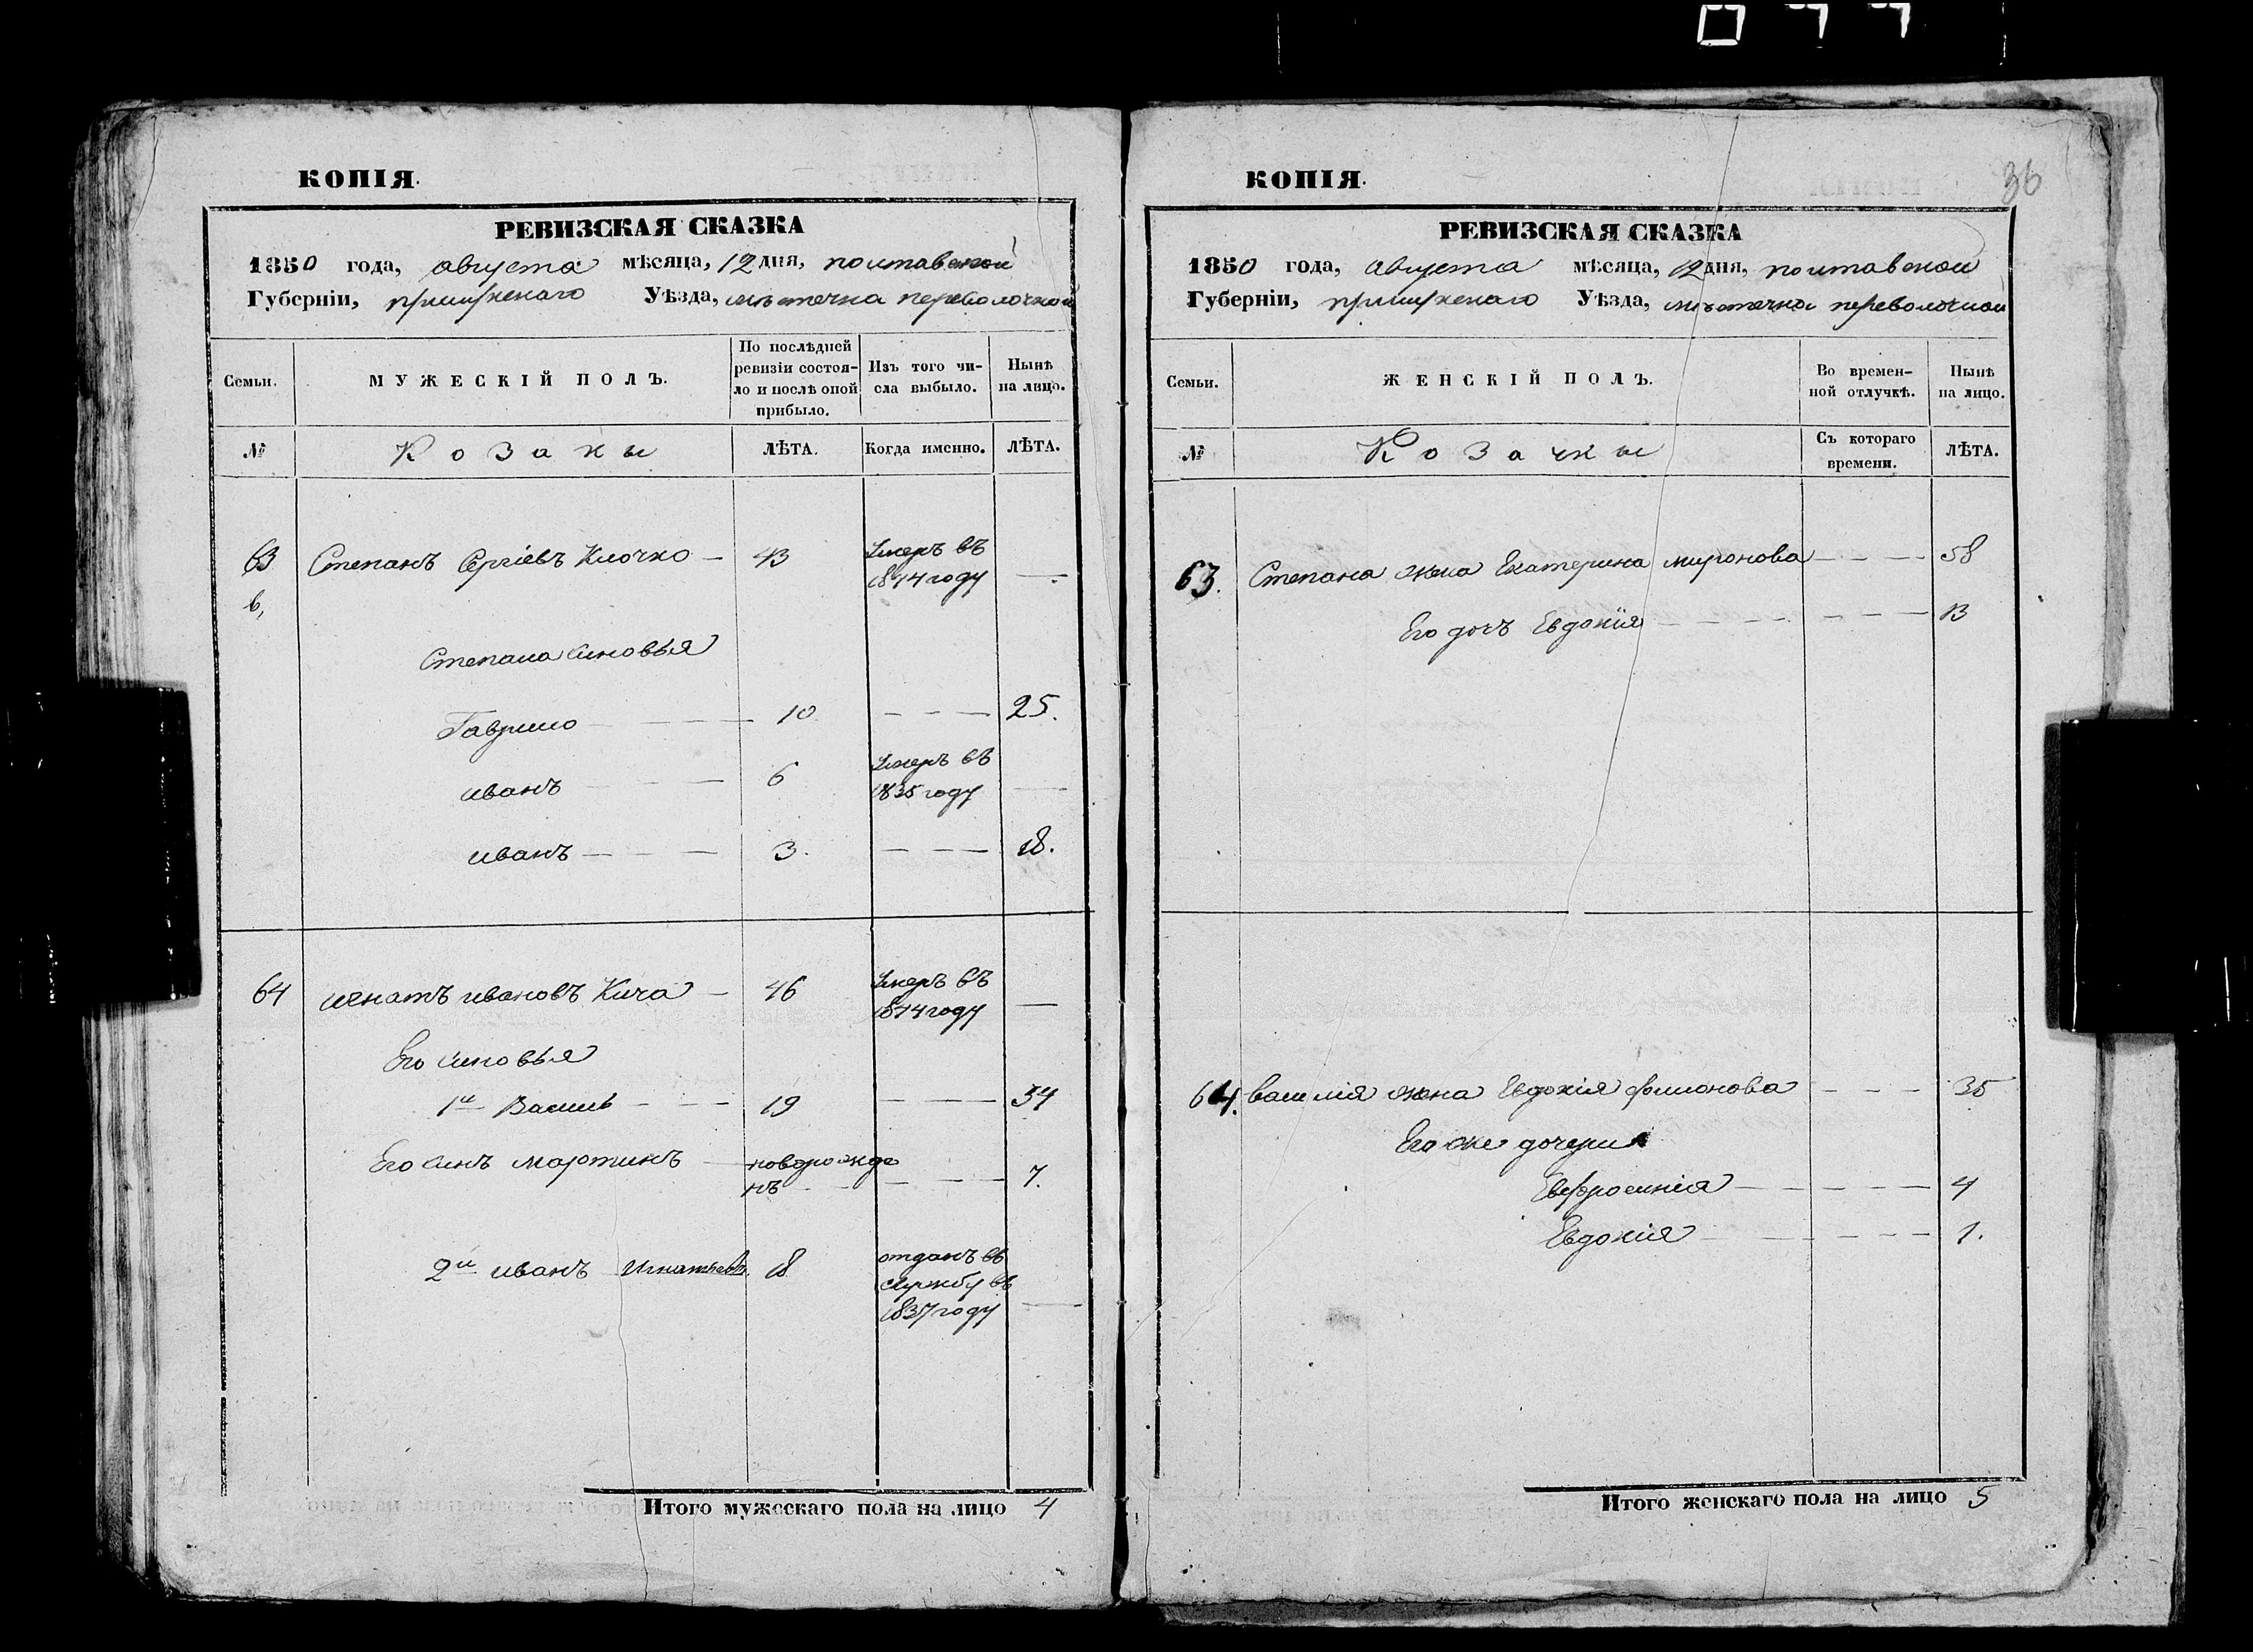 КОПІЯ.
РЕВИЗСКАЯ СКАЗКА
1850 года, августа мѣсяца, 12 дня, полтавской
Губерніи, прилукскаго Уѣзда, мѣстечка переволочной
Семьи.
МУЖЕСКІЙ ПОЛЪ.
По послѣдней
ревизіи состоя-
ло и послѣ оной
прибыло.
Изъ того чи-
сла выбыло.
Нынѣ
на лицо.
№
Козаки
ЛѢТА.
Когда именно.
ЛѢТА.
63 Степанъ Сергіевъ Клочко — 43 Умеръ въ
1844 году —
Степана синовья
Гаврило — — — — 10 — — — 25.
иванъ — — — 6 Умеръ въ
1835 году —
иванъ — — — 3. — — — 18.
64 игнатъ ивановъ Кича — 46 Умеръ въ
1844 году —
Его синовья
1й Василь — — — 19 — — — 34
Его синъ мартинъ — новорожде
нъ — — — — — 7.
2й иванъ Игнатьевъ. 18 отданъ въ
службу въ
1837 году —
Итого мужескаго пола на лицо 4
КОПІЯ.
36
РЕВИЗСКАЯ СКАЗКА
1850 года, августа мѣсяца, 12 дня, полтавской
Губерніи, прилукскаго Уѣзда, мѣстечка переволочной
Семьи.
ЖЕНСКІЙ ПОЛЪ.
Во времен-
ной отлучкѣ.
Нынѣ
на лицо.
№
Козачки
Съ котораго
времени.
ЛѢТА.
63. Степана жена Екатерина миронова — — — 58
Его дочъ Евдокія — — — — — — — 13
64. василія жена Евдокія филионова — — — 35
Его же дочери
Евфросинія — — — — — — 4
Евдокія — — — — — — 1.
Итого женскаго пола на лицо 5